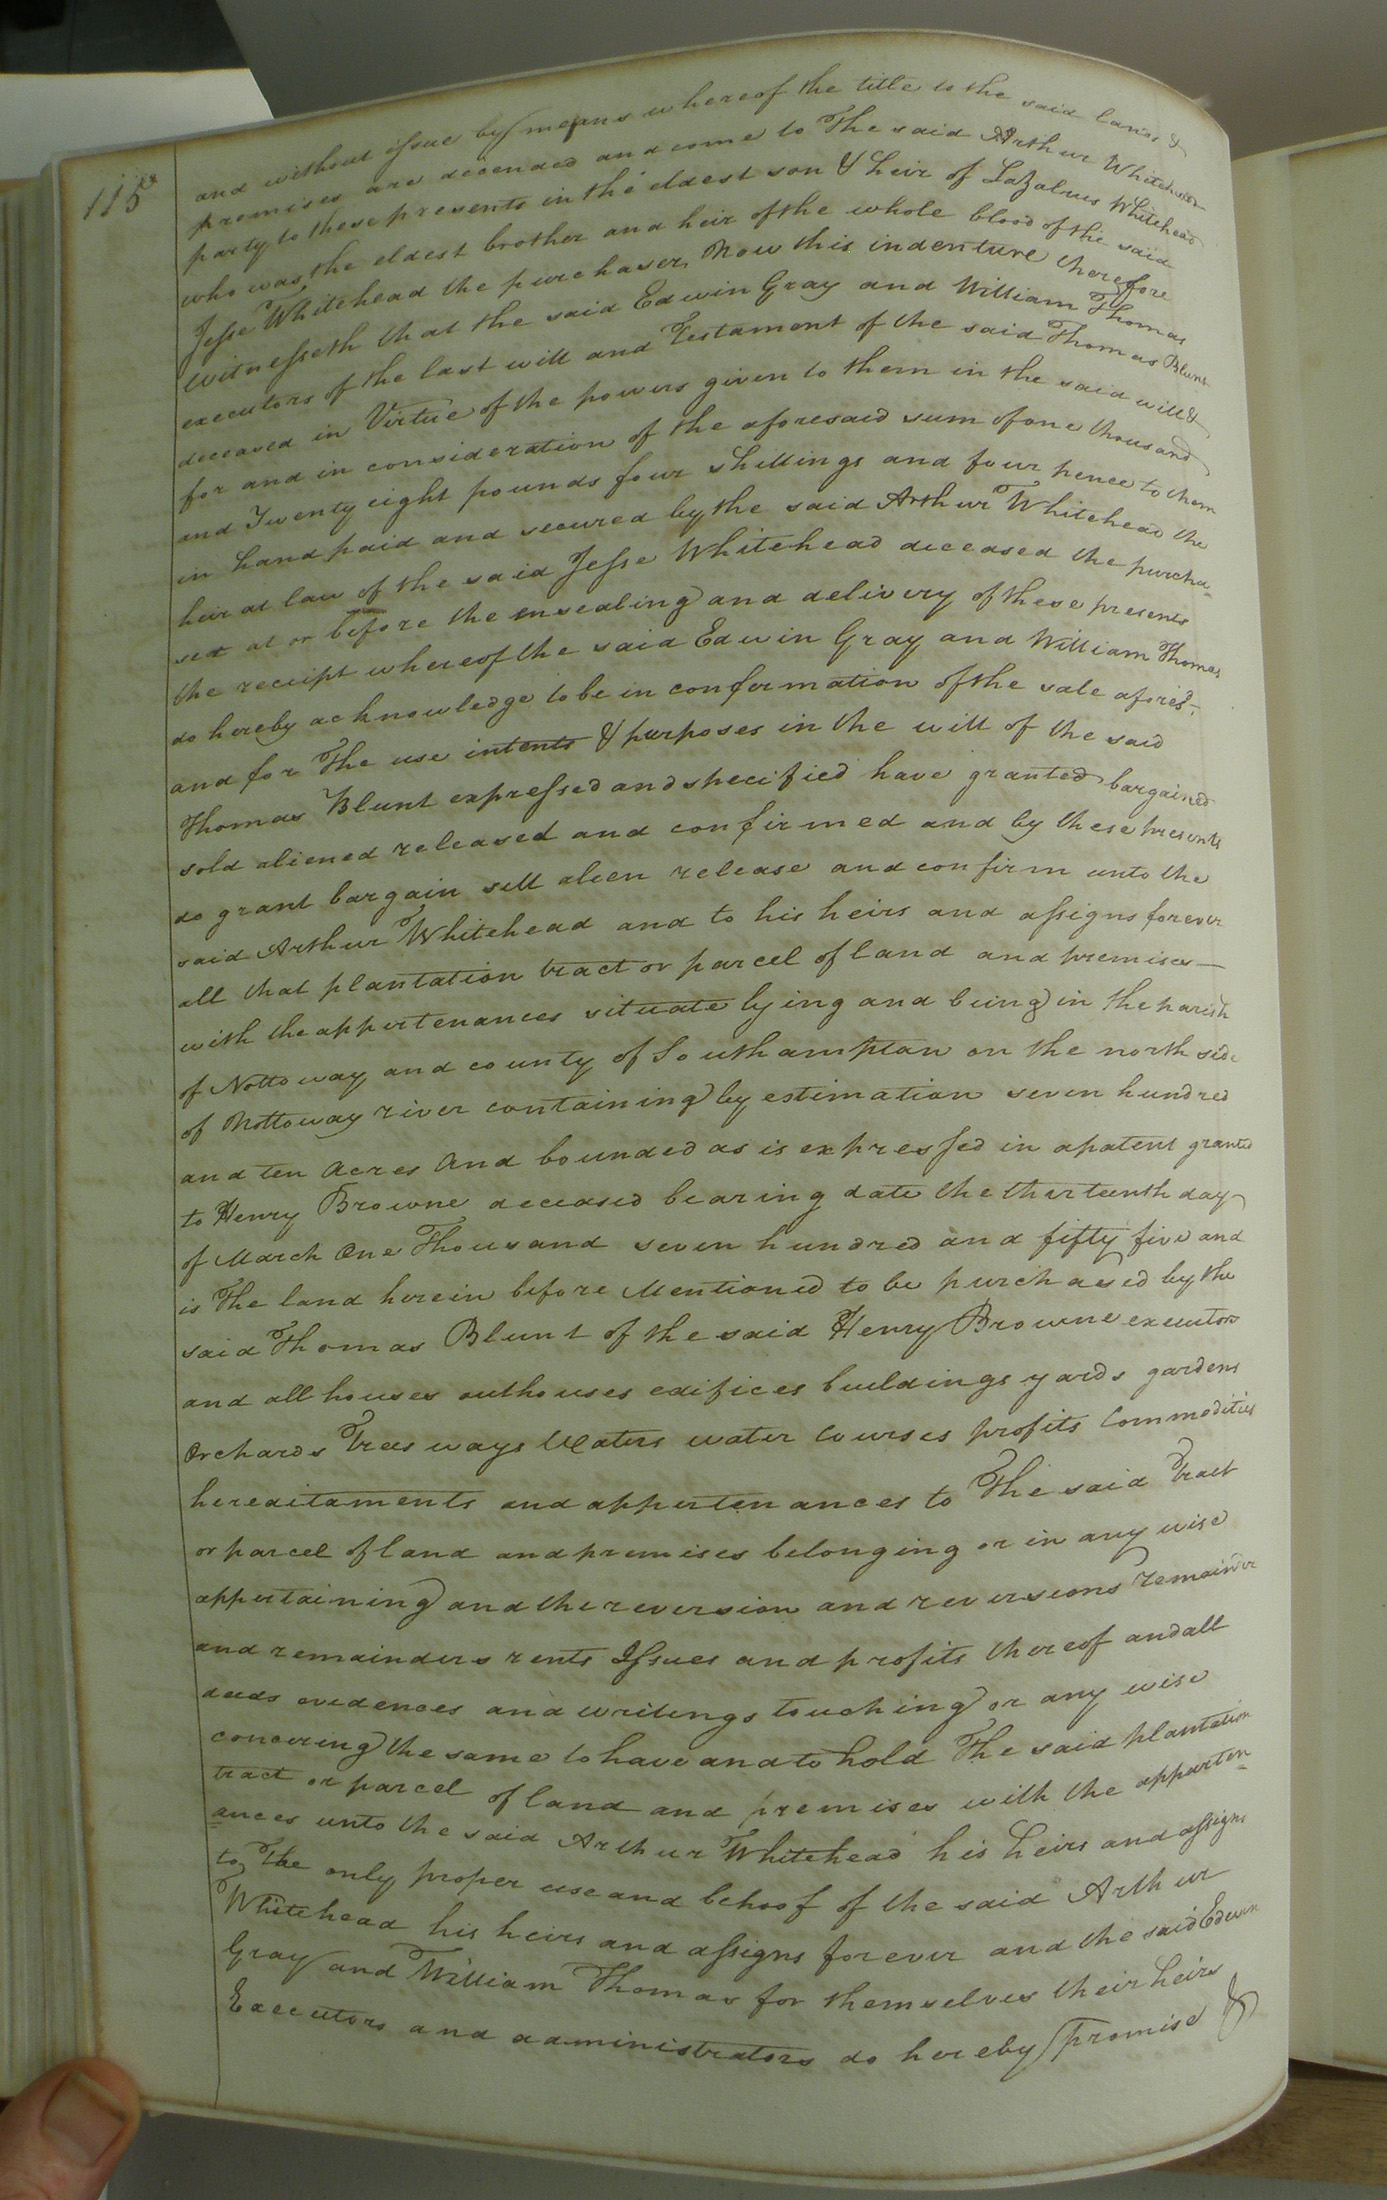 115
and without issue by means whereof the title to the said lands &
premises are decended and come to The said Arthur Whitehead
party to these presents in the eldest son & heir of Lazalrus Whitehead
who was the eldest brother and heir of the whole blood of the said
Jesse Whitehead the purchaser, Now this indenture therefore
witnesseth that the said Edwin Gray and William Thomas
executors of the last will and Testament of the said Thomas Blunt
deceased in Virtue of the powers given to them in the said will &
for and in consideration of the aforesaid sum of one thousand
and Twenty eight pounds four shillings and four pence to them
in hand paid and secured by the said Arthur Whitehead the
heir at law of the said Jesse Whitehead deceased the purcha=
ser at or before the ensealing and delivery of these presents
the receipt whereof the said Edwin Gray and William Thomas
do hereby acknowledge to be in confirmation of the sale aforesd.
and for The use intents & purposes in the will of the said
Thomas Blunt expressed and specified have granted bargained
sold aliened released and confirmed and by these presents
do grant bargain sell alien release and confirm unto the
said Arthur Whitehead and to his heirs and assigns forever
all that plantation tract or parcel of land and premises
with the appertenances situate lying and being in the parish
of Nottoway and county of Southampton on the north side
of Nottoway river containing by estimation seven hundred
and ten Acres And bounded as is expressed in a patent granted
to Henry Browne deceased bearing date the thirteenth day
of March One Thousand seven hundred and fifty five and
is The land herein before Mentioned to be purchased by the
said Thomas Blunt of the said Henry Browne executors
and all houses outhouses edifices buildings yards gardens
Orchards Trees ways Waters water Courses profits Commodities
hereditaments and appertenances to The said Tract
or parcel of land and premises belonging or in any wise
appertaining and the reversion and reversions remainder
and remainders rents Issues and profits thereof and all
deeds evidences and writings touching or any wise
concering the same to have and to hold The said plantation
tract or parcel of land and premises with the apparten=
ances unto the said Arthur Whitehead his heirs and assigns
to The only proper use and behoof of the said Arthur
Whitehead his heirs and assigns forever and the said Edwin
Gray and William Thomas for themselves their heirs
Executors and administrators do hereby promise &